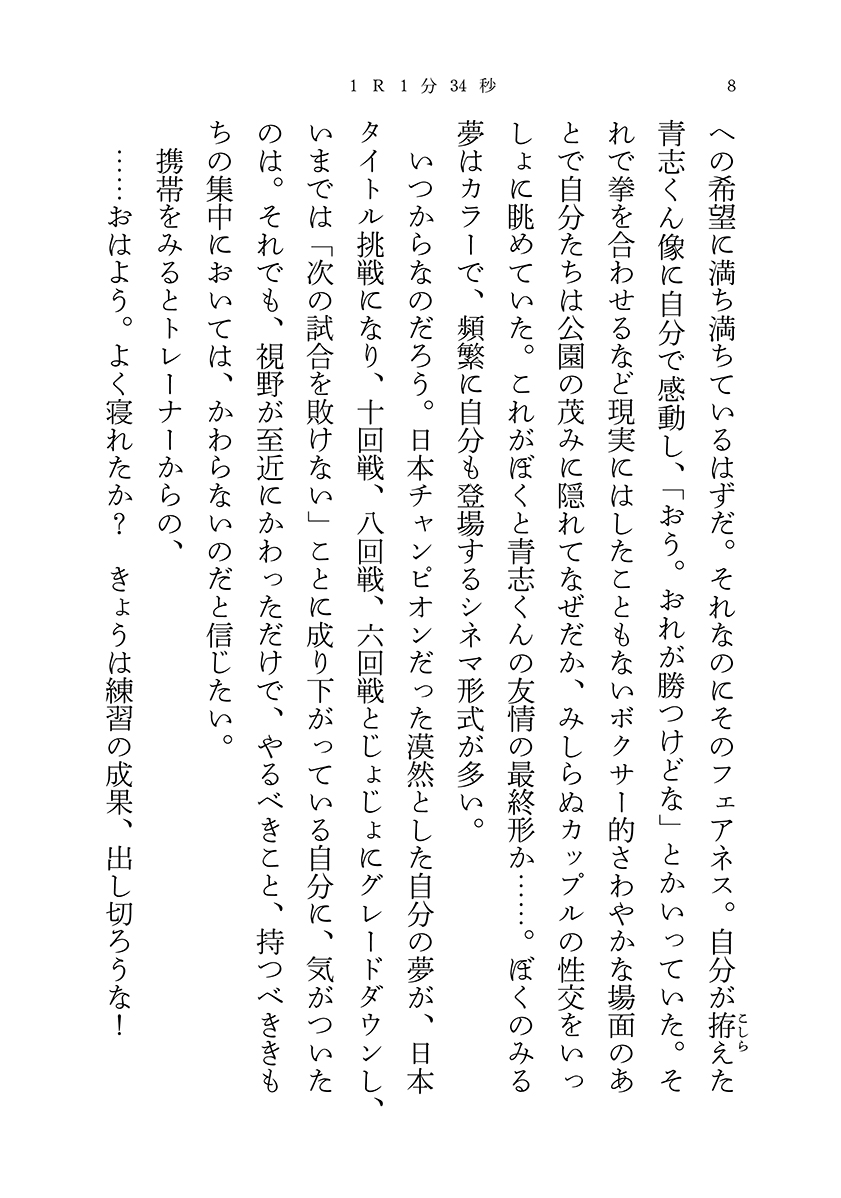 1R1分34秒
8
への希望に満ち満ちているはずだ。それなのにそのフェアネス。自分が拵えた
こしら
青志くん像に自分で感動し、「おう。おれが勝つけどな」とかいっていた。そ
れで拳を合わせるなど現実にはしたこともないボクサー的さわやかな場面のあ
とで自分たちは公園の茂みに隠れてなぜだか、みしらぬカップルの性交をいっ
しょに眺めていた。これがぼくと青志くんの友情の最終形か……。ぼくのみる
夢はカラーで、頻繁に自分も登場するシネマ形式が多い。
いつからなのだろう。日本チャンピオンだった漠然とした自分の夢が、日本
タイトル挑戦になり、十回戦、八回戦、六回戦とじょじょにグレードダウンし、
いまでは「次の試合を敗けない」ことに成り下がっている自分に、気がついた
のは。それでも、視野が至近にかわっただけで、やるべきこと、持つべききも
ちの集中においては、かわらないのだと信じたい。
携帯をみるとトレーナーからの、
……おはよう。よく寝れたか？　きょうは練習の成果、出し切ろうな！